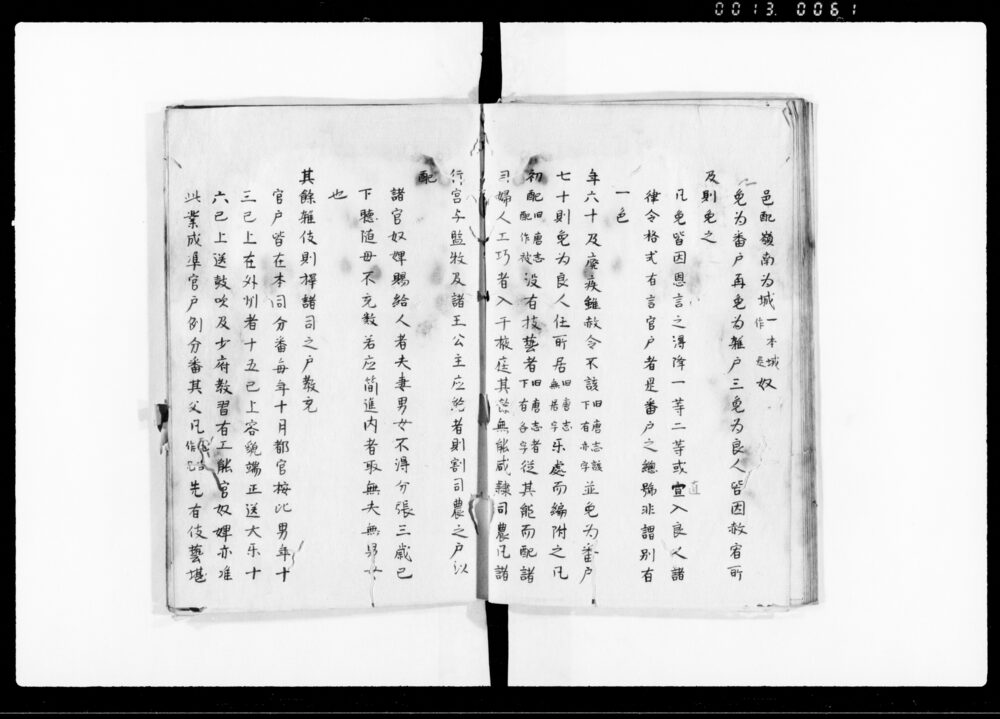 0013 0061
邑配嶺南为城一本城作是奴
免为番户再免为雜户三免为良人皆因赦宥所
及則免之
凡免皆因恩言之得降一等二等或宣入良人諸
直
律令格式有言官户者是番户之總號非謂别有
一色
年六十及廢疾雖赦令不該旧唐志該下有亦字並免为番户
七十則免为良人任所居旧唐志無居字乐處而編附之凡
初配旧唐志配作被没有技藝者旧唐志者下有各字從其能而配諸
司婦人工巧者入于掖庭其餘無能咸隸司農凡諸
行宫与監牧及諸王公主应給者則割司農之户以
配
諸官奴婢賜給人者夫妻男女不得分張三歲已
下聽随母不充数若应簡進内者取無夫無男女
也
其餘雜伎則擇諸司之户教充
官户皆在本司分番每年十月都官按比男年十
三已上在外州者十五已上容貌端正送大乐十
六已上送鼓吹及少府教習有工能官奴婢亦准
此業成準官户例分番其父凡先有伎藝堪